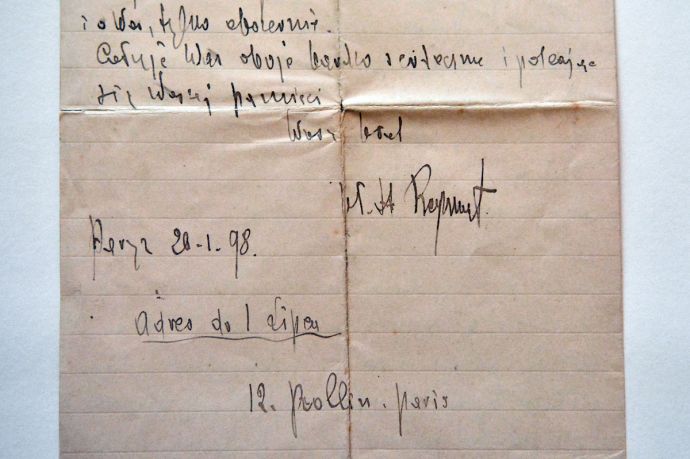 i o Was, tylko obolesnie.
Całuję Was oboje bardzo serdecznie i polecając
się Waszej pamięci
Wasz brat
Wł. St Reymont
Paryż 20-1-98.
Adres do 1 Lipca
12. Rollin. Paris